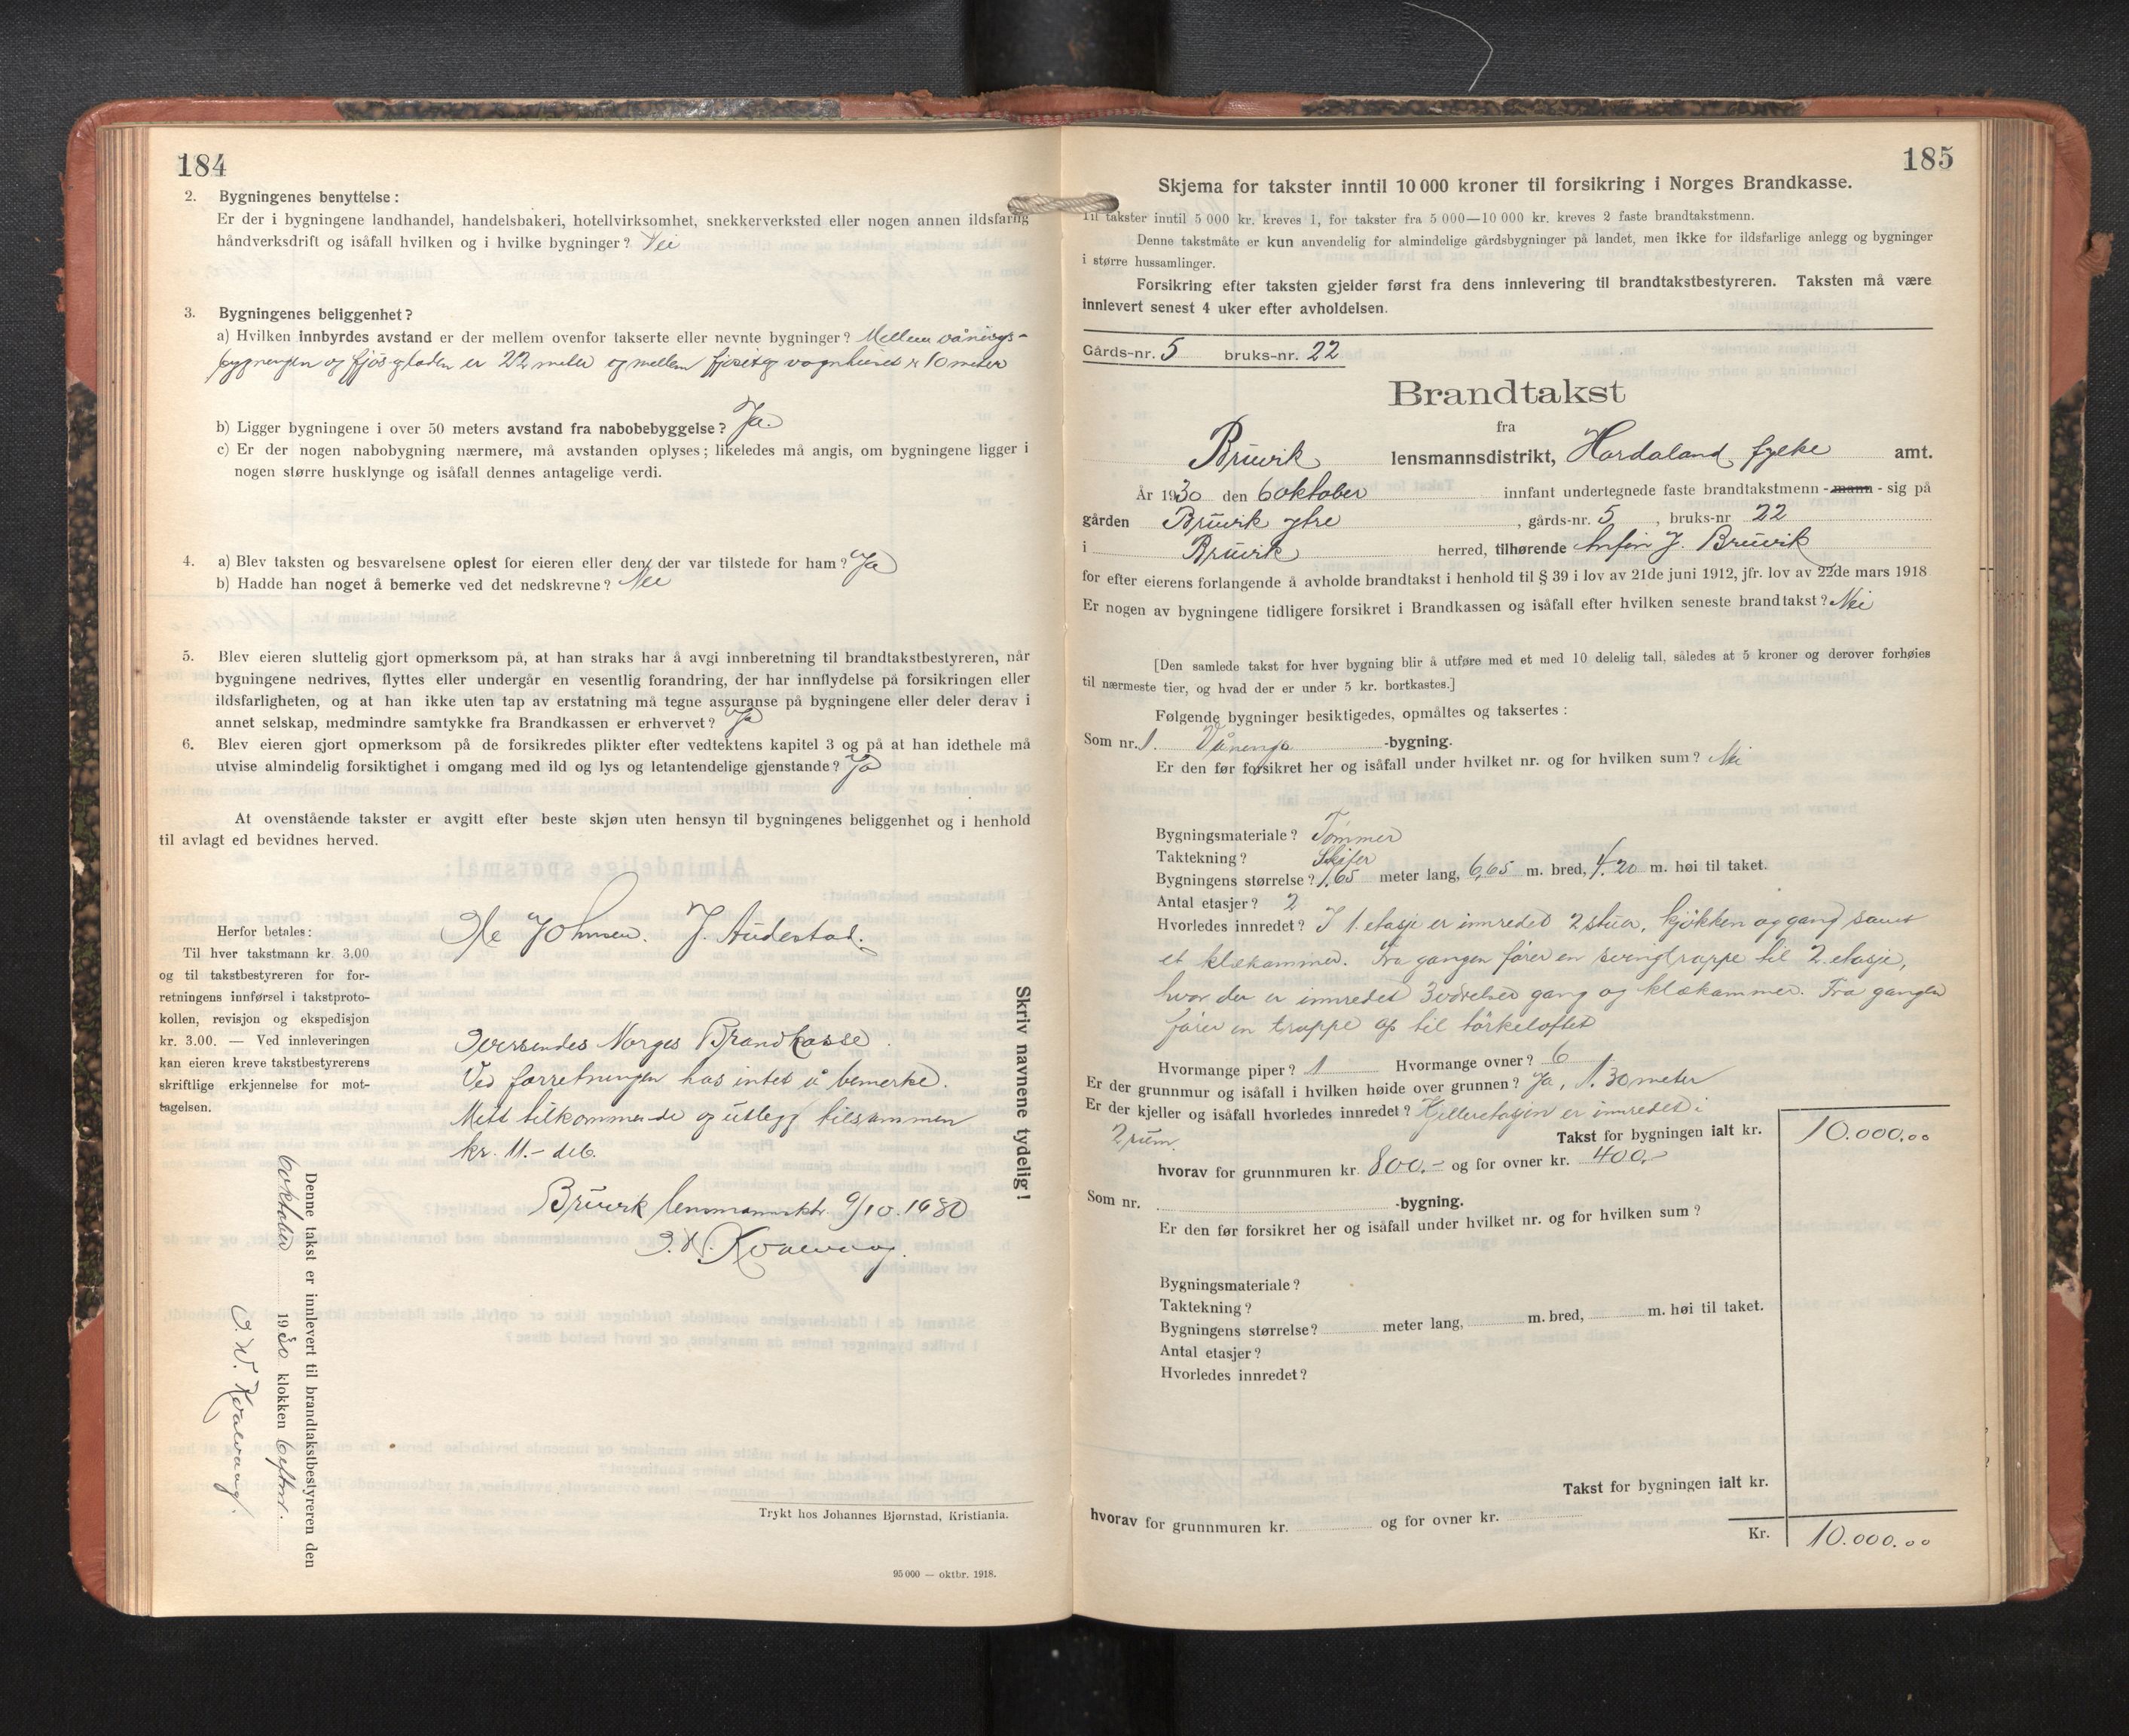 184
2. Bygningenes benyttelse:
Er der i bygningene landhandel, handelsbakeri, hotellvirksomhet, snekkerverksted eller nogen annen ildsfarlig
håndverksdrift og isåfall hvilken og i hvilke bygninger? Nei
3. Bygningenes beliggenhet?
a) Hvilken innbyrdes avstand er der mellem ovenfor takserte eller nevnte bygninger? Mellem vånings-
bygningen og fjös og laden er 22 meter og mellem fjöset og vognhuset er 10 meter
b) Ligger bygningene i over 50 meters avstand fra nabobebyggelse? Ja.
c) Er der nogen nabobygning nærmere, må avstanden oplyses; likeledes må angis, om bygningene ligger i
nogen større husklynge og isåfall dennes antagelige verdi.
4. a) Blev taksten og besvarelsene oplest for eieren eller den, der var tilstede for ham? Ja
b) Hadde han noget å bemerke ved det nedskrevne? Nei
5. Blev eieren sluttelig gjort opmerksom på, at han straks har å avgi innberetning til brandtakstbestyreren, når
bygningene nedrives, flyttes eller undergår en vesentlig forandring, der har innflydelse på forsikringen eller
ildsfarligheten, og at han ikke uten tap av erstatning må tegne assuranse på bygningene eller deler derav i
annet selskap, medmindre samtykke fra Brandkassen er erhvervet? Ja
6. Blev eieren gjort opmerksom på de forsikredes plikter efter vedtektens kapitel 3 og på at han idethele må
utvise almindelig forsiktighet i omgang med ild og lys og letantendelige gjenstande? Ja
At ovenstående takster er avgitt efter beste skjøn uten hensyn til bygningenes beliggenhet og i henhold
til avlagt ed bevidnes herved.
Johnsen. J. Audestad.
Herfor betales:
Til hver takstmann kr. 3.00
og til takstbestyreren for for-
retningens innførsel i takstproto-
kollen, revisjon og ekspedisjon
kr. 3.00. — Ved innleveringen
kan eieren kreve takstbestyrerens
skriftlige erkjennelse for mot-
tagelsen.
Oversendes Norges Brandkasse.
Ved forretningen has intet å bemerke.
Mitt tilkommende og utlegg tilsammen
kr. 11.-
Bruvik lensmannsktr. 9/10.1930
O. W. Kvalvaag.
Skriv navnene tydelig!
Denne takst er innlevert til brandtakstbestyreren den
6 oktober 1930 klokken 6 efterm.
O. W. Kvalvaag.
Trykt hos Johannes Bjørnstad, Kristiania.
95 000 — oktbr. 1918.
185
Skjema for takster inntil 10 000 kroner til forsikring i Norges Brandkasse.
Til takster inntil 5 000 kr. kreves 1, for takster fra 5 000—10 000 kr. kreves 2 faste brandtakstmenn.
Denne takstmåte er kun anvendelig for almindelige gårdsbygninger på landet, men ikke for ildsfarlige anlegg og bygninger
i større hussamlinger.
Forsikring efter taksten gjelder først fra dens innlevering til brandtakstbestyreren. Taksten må være
innlevert senest 4 uker efter avholdelsen.
Gårds-nr. 5 bruks-nr. 22
Brandtakst
fra
Bruvik lensmannsdistrikt, Hordaland fylke amt.
År 1930 den 6 oktober innfant undertegnede faste brandtakstmenn - mann - sig på
gården Bruvik ytre, gårds-nr. 5, bruks-nr 22
i Bruvik herred, tilhørende Anfin J. Bruvik
for efter eierens forlangende å avholde brandtakst i henhold til § 39 i lov av 21de juni 1912, jfr. lov av 22de mars 1918
Er nogen av bygningene tidligere forsikret i Brandkassen og isåfall efter hvilken seneste brandtakst? Nei
[Den samlede takst for hver bygning blir å utføre med et med 10 delelig tall, således at 5 kroner og derover forhøies
til nærmeste tier, og hvad der er under 5 kr. bortkastes.]
Følgende bygninger besiktigedes, opmåltes og taksertes:
Som nr. 1. Vånings -bygning.
Er den før forsikret her og isåfall under hvilket nr. og for hvilken sum? Nei
Bygningsmateriale? Tømmer
Taktekning? Skifer
Bygningens størrelse? meter lang, 6,65 m. bred, 4.20 m. høi til taket.
Antal etasjer? 2
Hvorledes innredet? I 1. etasje er innredet 2 stuer, kjökken og gang samt
et klækammer. Fra gangen fører en svingtrappe til 2. etasje,
hvor der er innredet 3 værelser gang og klækammer. Fra gangen
fører en trappe op til törkeloftet
Hvormange piper? 1 Hvormange ovner? 6
Er der grunnmur og isåfall i hvilken høide over grunnen? Ja, 1.30 meter
Er der kjeller og isåfall hvorledes innredet? Kjelleretasjen er innredet i
2 rum.
Takst for bygningen ialt kr. 10.000.00
hvorav for grunnmuren kr. 800.- og for ovner kr. 400.-
Som nr. -bygning.
Er den før forsikret her og isåfall under hvilket nr. og for hvilken sum?
Bygningsmateriale?
Taktekning?
Bygningens størrelse? meter lang, m. bred, m. høi til taket.
Antal etasjer?
Hvorledes innredet?
Takst for bygningen ialt kr.
hvorav for grunnmuren kr. og for ovner kr.
Kr. 10.000.00